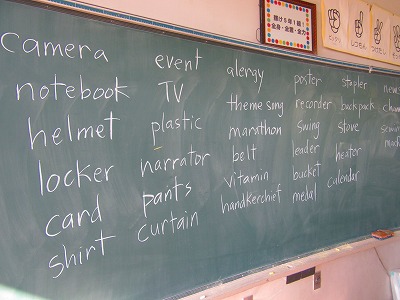 camera
notebook
helmet
locker
card
shirt
event
TV
plastic
narrator
pants
curtain
alergy
theme song
marathon
belt
vitamin
handkerchief
poster
recorder
swing
leader
bucket
medal
stapler
backpack
stove
heator
calendar
news